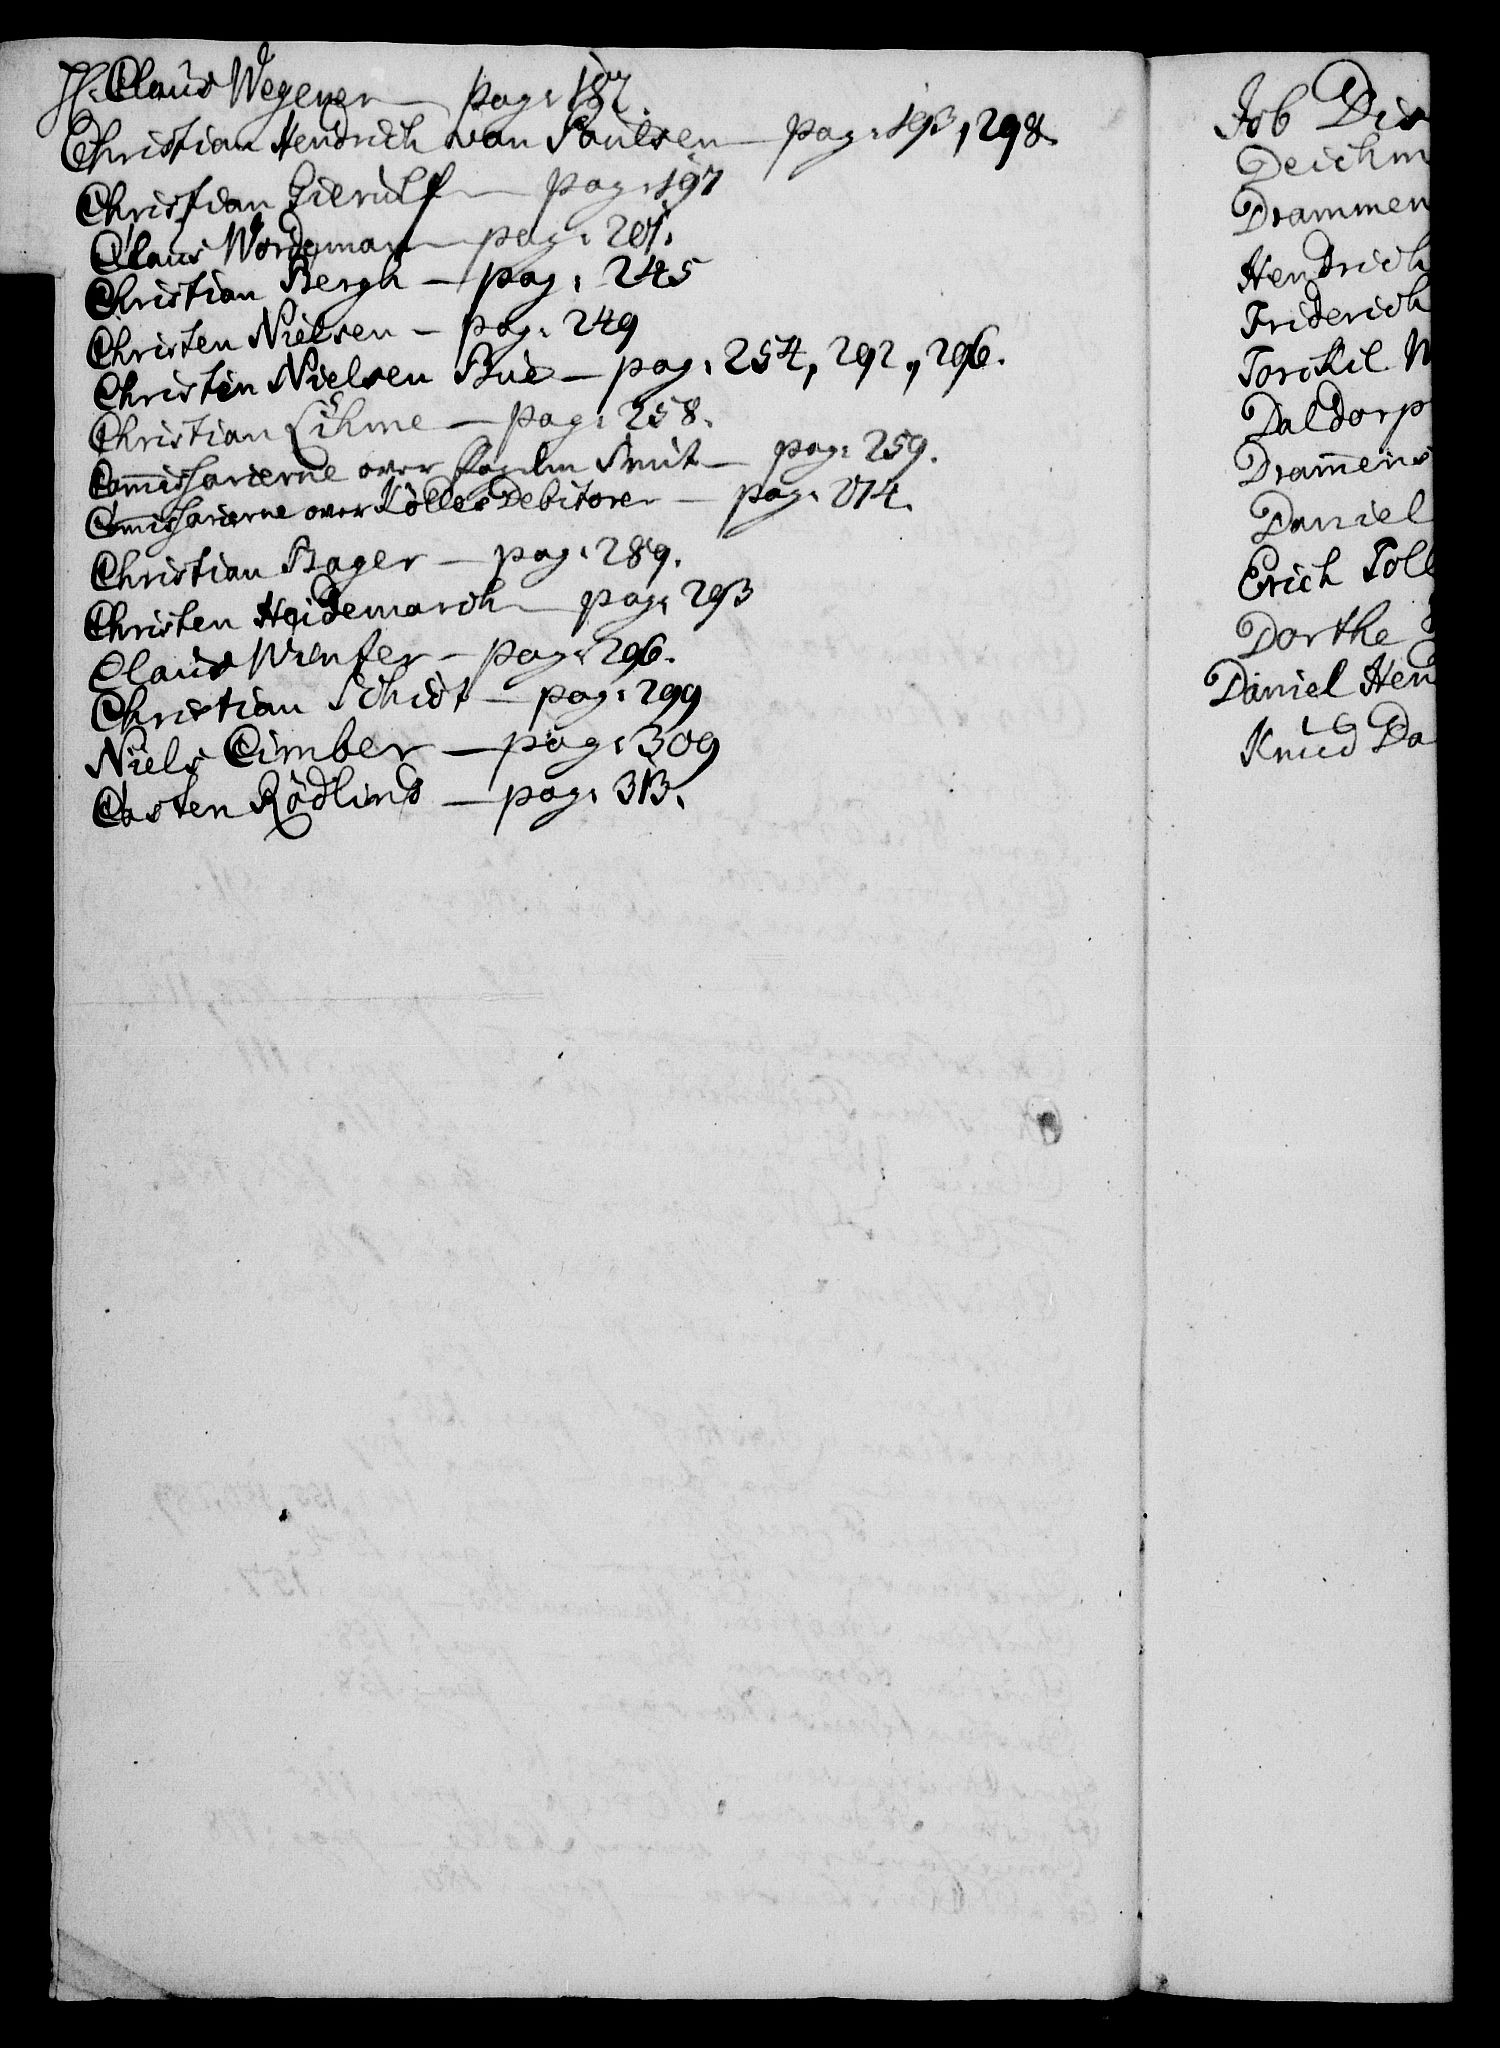 H. Claus Wegener — pag: 187.
Christian Hendrich von Paulsen — pag: 193, 298.
Christian Gierulf — pag: 197
Claus Wordeman — pag: 207.
Christian Bergh — pag: 245
Christen Nielsen — pag: 249
Christen Nielsen Bue — pag: 254, 292, 296.
Christian Lihme — pag: 258.
Commissarierne over Smit — pag: 259.
Commissarierne over Kölles Debitorer — pag: 274.
Christian Bager — pag: 289.
Christen Heidemarch — pag: 293
Claus Winter — pag: 296.
Christian Schidt — pag: 299
Niels Cimber — pag: 309
Casten Rödlins — pag: 313.
Job Dis
Deichm
Drammen
Hendrich
Friderich
Torchil N
Daldorp
Drammens
Daniel
Erich Toll
Dorthe
Daniel Hen
Knud Da